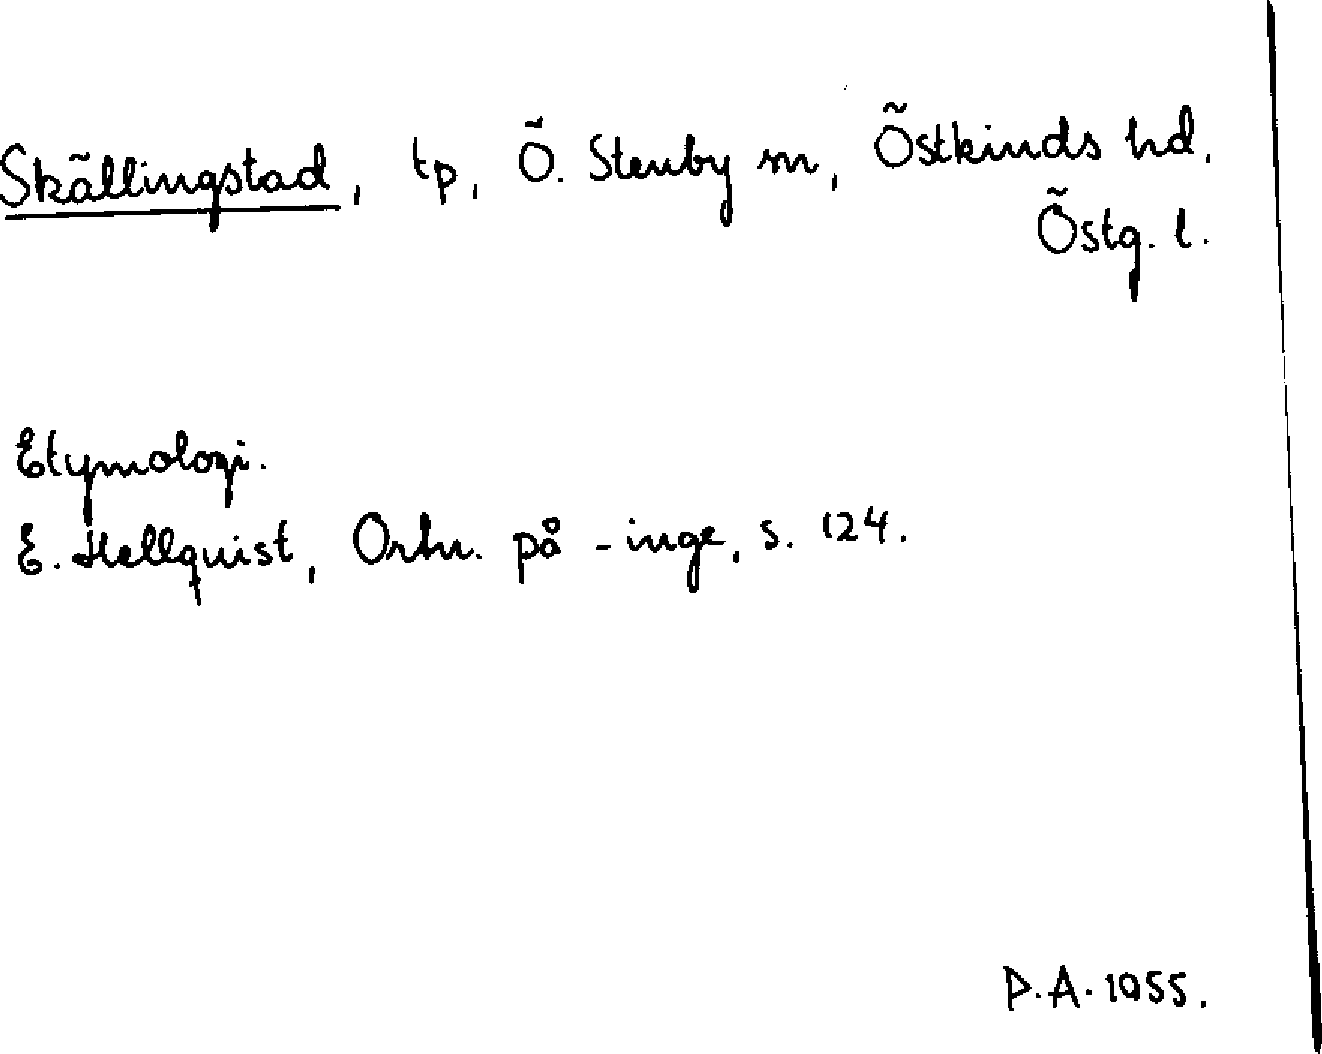 Skällingstad, tp, Ö. Stenby sn, Östkinds hd.
Östg. l.
Etymologi.
E. Hellquist, Ortn. på -inge, s. 124.
P.A. 1955.